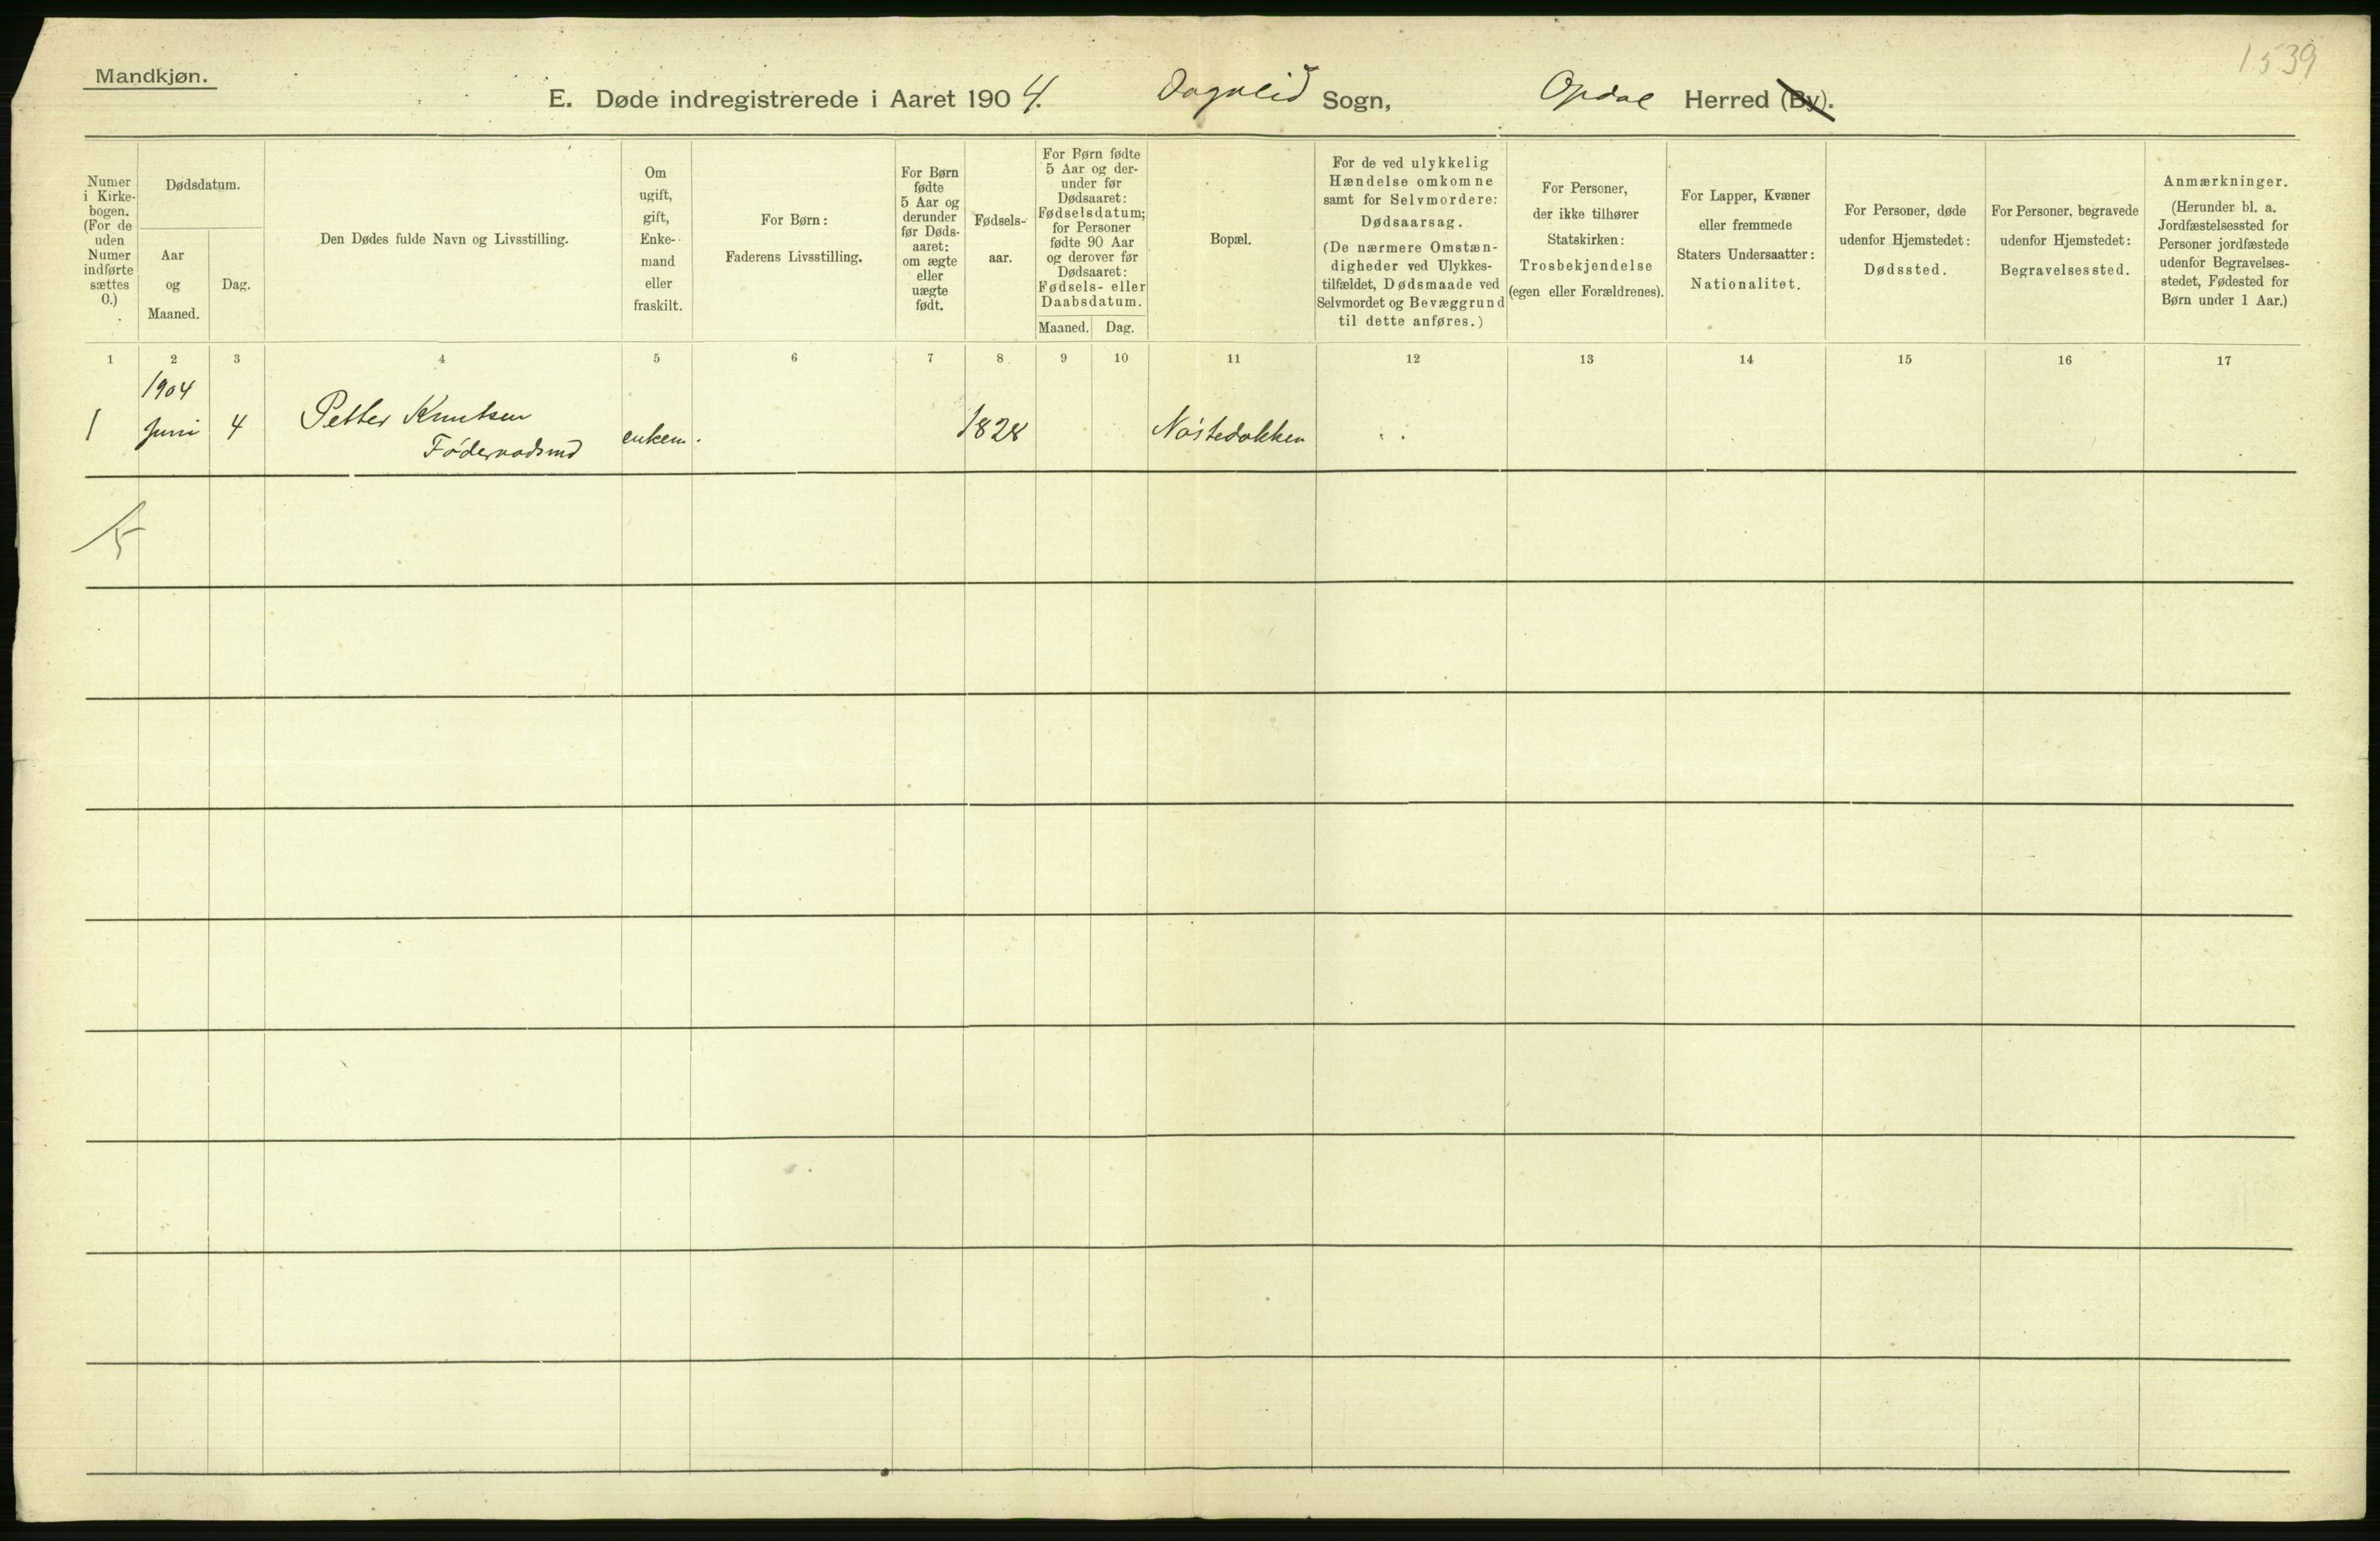 1539
Mandkjøn.
E. Døde indregistrerede i Aaret 1904. Dagali Sogn, Opdal Herred (By).
Numer i Kirke- bogen. (For de uden Numer indførte sættes 0.)
Dødsdatum.
Aar og Maaned.
Dag.
Den Dødes fulde Navn og Livsstilling.
Om ugift, gift, Enke- mand eller fraskilt.
For Børn:
Faderens Livsstilling.
For Børn fødte 5 Aar og derunder før Døds- aaret: om ægte eller uægte født.
Fødsels- aar.
For Børn fødte 5 Aar og der- under før Dødsaaret: Fødselsdatum; for Personer fødte 90 Aar og derover før Dødsaaret: Fødsels- eller Daabsdatum.
Maaned. Dag.
Bopæl.
For de ved ulykkelig Hændelse omkomne samt for Selvmordere: Dødsaarsag. (De nærmere Omstæn- digheder ved Ulykkes- tilfældet, Dødsmaade ved Selvmordet og Bevæggrund til dette anføres.)
For Personer, der ikke tilhører Statskirken: Trosbekjendelse (egen eller Forældrenes).
For Lapper, Kvæner eller fremmede Staters Undersaatter: Nationalitet.
For Personer, døde udenfor Hjemstedet: Dødssted.
For Personer, begravede udenfor Hjemstedet: Begravelsessted.
Anmærkninger. (Herunder bl. a. Jordfæstelsessted for Personer jordfæstede udenfor Begravelses- stedet, Fødested for Børn under 1 Aar.)
1 2 3 4 5 6 7 8 9 10 11 12 13 14 15 16 17
1904
1 Juni 4 Petter Knutsen enkem. 1828 Nøstedokken
Føderaadsmd